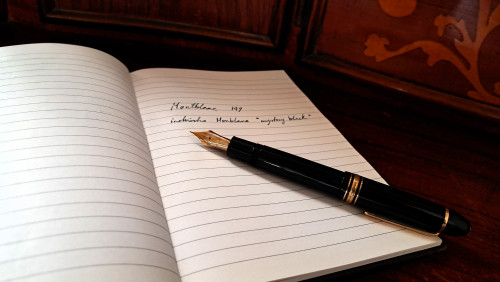 Montblanc 149
inchiostro Monblanc "mystery black"